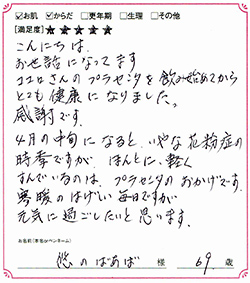 ☑お肌 ☑からだ □更年期 □生理 □その他
[満足度]★★★★★
こんにちは。
お世話になってます
ココロさんのプラセンタを飲み始めてから
とても健康になりました。
感謝です。
4月の中旬になると、いやな花粉症の
時季ですが、ほんとに、軽く
すんでいるのは、プラセンタのおかげです。
寒暖のはげしい毎日ですが
元気に過ごしたいと思います。
お名前(本名orペンネーム)
悠のばあば 様 69 歳